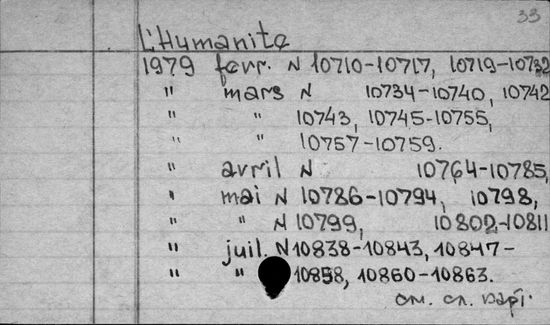 33
L'Humanite
1979 fevr. N 10710-10717, 10719-10732
" mars N 10734-10740, 10742
" " 10743, 10745-10755,
" " 10757-10759.
" avril N 10764-10785,
" mai N 10786-10794, 10798,
" " N 10799, 10802-10811
" juil. N 10838-10843, 10847-
" " 10858, 10860-10863.
см. сл. карт.